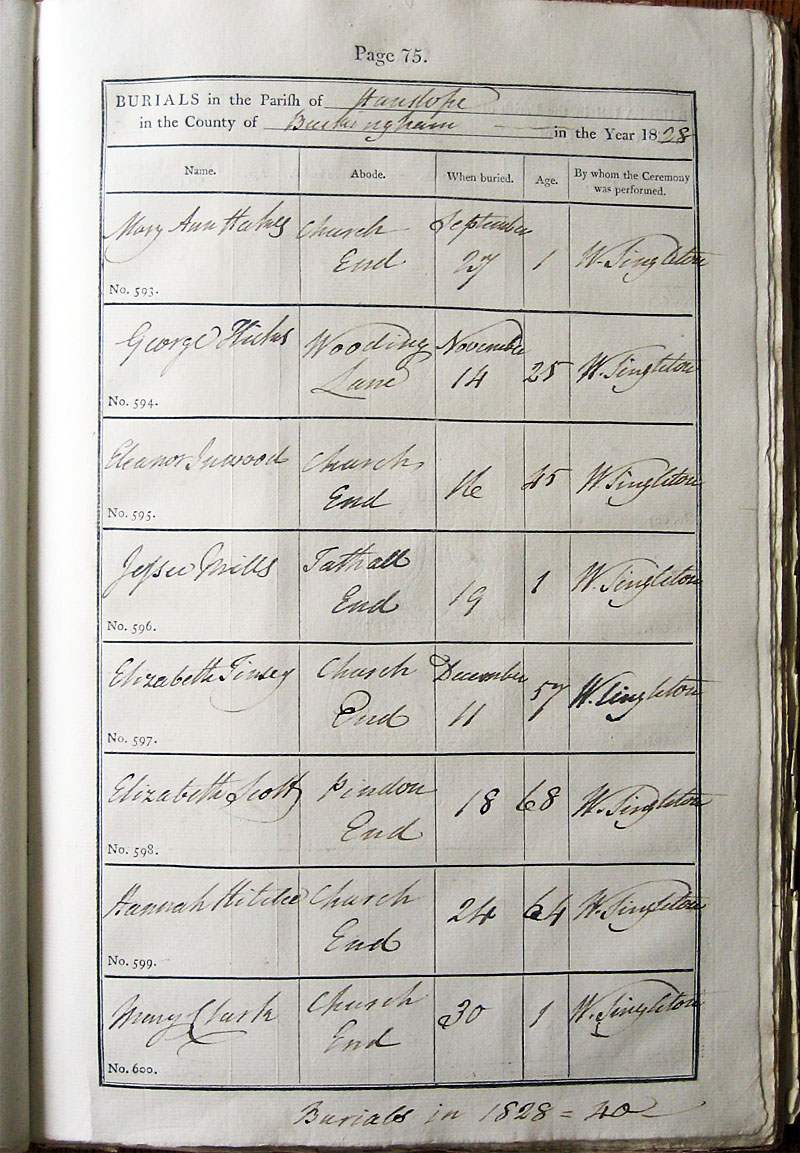 Page 75.
BURIALS in the Parish of Hanslope
in the County of Buckingham in the Year 1828
Name. Abode. When buried. Age. By whom the Ceremony was performed.
Mary Ann Church September
End 27 1 W. Singleton
No. 593.
George Hicks Wooding November
Lane 14 25 W. Singleton
No. 594.
Eleanor Inwood Church
End 16 45 W. Singleton
No. 595.
Jessee Mills Tathall
End 19 1 W. Singleton
No. 596.
Elizabeth Tinsey Church December
End 11 57 W. Singleton
No. 597.
Elizabeth Scott Pindon
End 18 68 W. Singleton
No. 598.
Hannah Church
End 24 64 W. Singleton
No. 599.
Mary Clark Church
End 30 1 W. Singleton
No. 600.
Burials in 1828 = 40